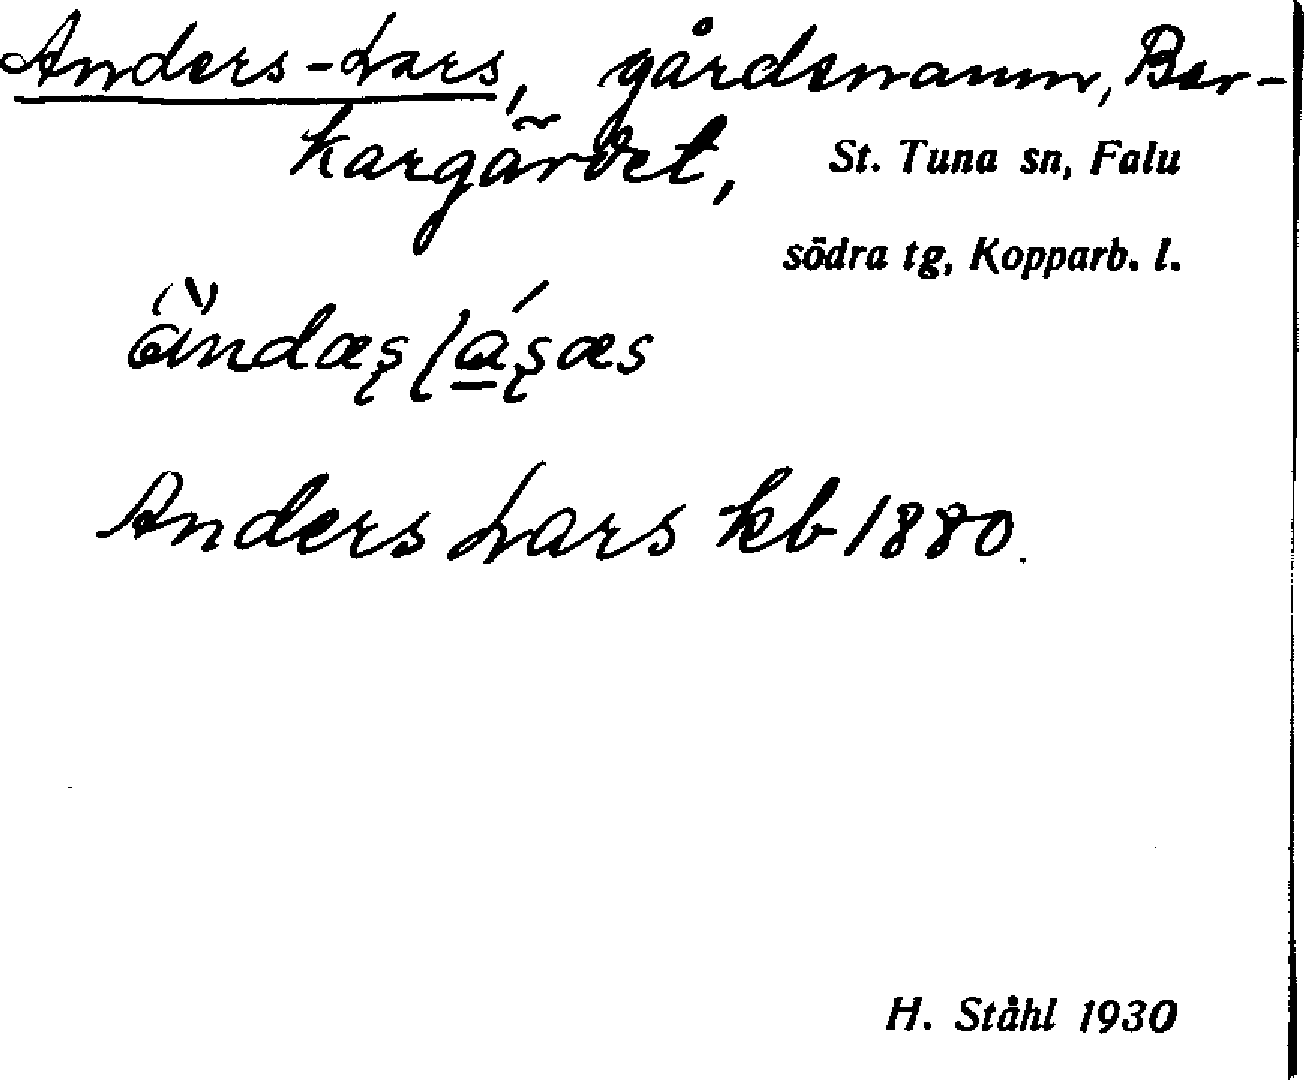 Anders-Lars, gårdsnamn, Ber-
kargärdet, St. Tuna sn, Falu
södra tg, Kopparb. l.
Anders Lars kb 1880.
H. Ståhl 1930